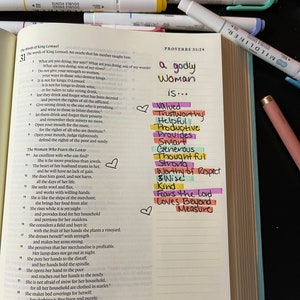 The words of King Lemuel
PROVERBS 31:24
31 The words of King Lemuel. An oracle that his mother taught him:
2 What are you doing, my son? What are you doing, son of my womb?
What are you doing, son of my vows?
3 Do not give your strength to women,
your ways to those who destroy kings.
4 It is not for kings, O Lemuel,
it is not for kings to drink wine,
or for rulers to take strong drink,
5 lest they drink and forget what has been decreed
and pervert the rights of all the afflicted.
6 Give strong drink to the one who is perishing,
and wine to those in bitter distress;
7 let them drink and forget their poverty
and remember their misery no more.
8 Open your mouth for the mute,
for the rights of all who are destitute.
9 Open your mouth, judge righteously,
defend the rights of the poor and needy.
The Woman Who Fears the Lord
10 An excellent wife who can find?
She is far more precious than jewels.
11 The heart of her husband trusts in her,
and he will have no lack of gain.
12 She does him good, and not harm,
all the days of her life.
13 She seeks wool and flax,
and works with willing hands.
14 She is like the ships of the merchant;
she brings her food from afar.
15 She rises while it is yet night
and provides food for her household
and portions for her maidens.
16 She considers a field and buys it;
with the fruit of her hands she plants a vineyard.
17 She dresses herself with strength
and makes her arms strong.
18 She perceives that her merchandise is profitable.
Her lamp does not go out at night.
19 She puts her hands to the distaff,
and her hands hold the spindle.
20 She opens her hand to the poor
and reaches out her hands to the needy.
21 She is not afraid of snow for her household,
for all her household are clothed in scarlet.
22 She makes bed coverings for herself;
a godly
woman
is...
Valued
Trustworthy
Helpful
Productive
Provides
Smart
Generous
Thoughtful
Strong
Worthy of Respect
Wise
Kind
Fears the Lord
Loves Beyond
Measure
MILDLINER